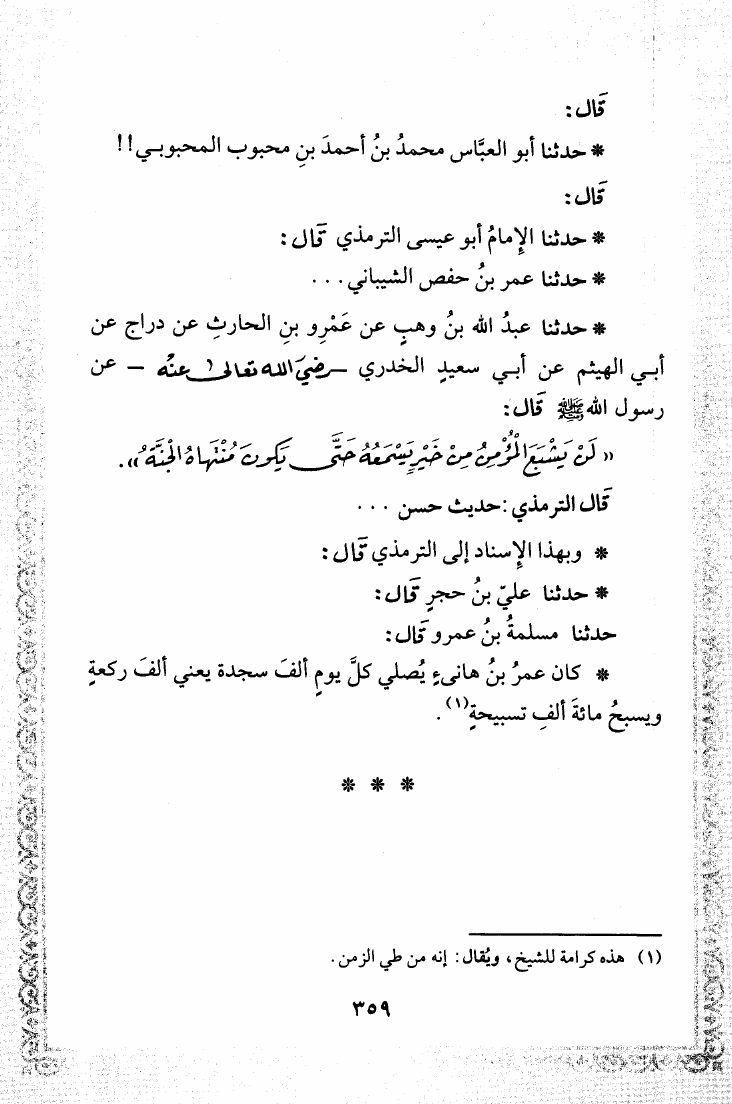 قَال:
* حدثنا أبو العبَّاس محمدُ بنُ أحمدَ بنِ محبوب المحبوبـي!!
قَال:
* حدثنا الإِمامُ أبو عيسى الترمذي قَال:
* حدثنا عمر بنُ حفص الشيباني...
* حدثنا عبدُ الله بنُ وهبٍ عن عَمْرِو بنِ الحارثِ عن دراج عن
أبـي الهيثم عن أبـي سعيدٍ الخدري – رضي الله تعالى عنه – عن
رسول الله ﷺ قَال:
«لَنْ يَشْبَعَ الْمُؤْمِنُ مِنْ خَيْرٍ يَسْمَعُهُ حَتَّى يَكُونَ مُنْتَهَاهُ الْجَنَّةُ».
قَال الترمذي: حديث حسن ...
* وبهذا الإِسناد إلى الترمذي قَال:
* حدثنا عليّ بنُ حجرٍ قَال:
حدثنا مسلمةُ بنُ عمرو قَال:
* كان عمرُ بنُ هانىءٍ يُصلي كلَّ يومٍ ألفَ سجدة يعني ألفَ ركعةٍ
ويسبحُ مائةَ ألفِ تسبيحةٍ(١).
* * *
(١) هذه كرامة للشيخ، ويُقال: إنه من طي الزمن.
٣٥٩